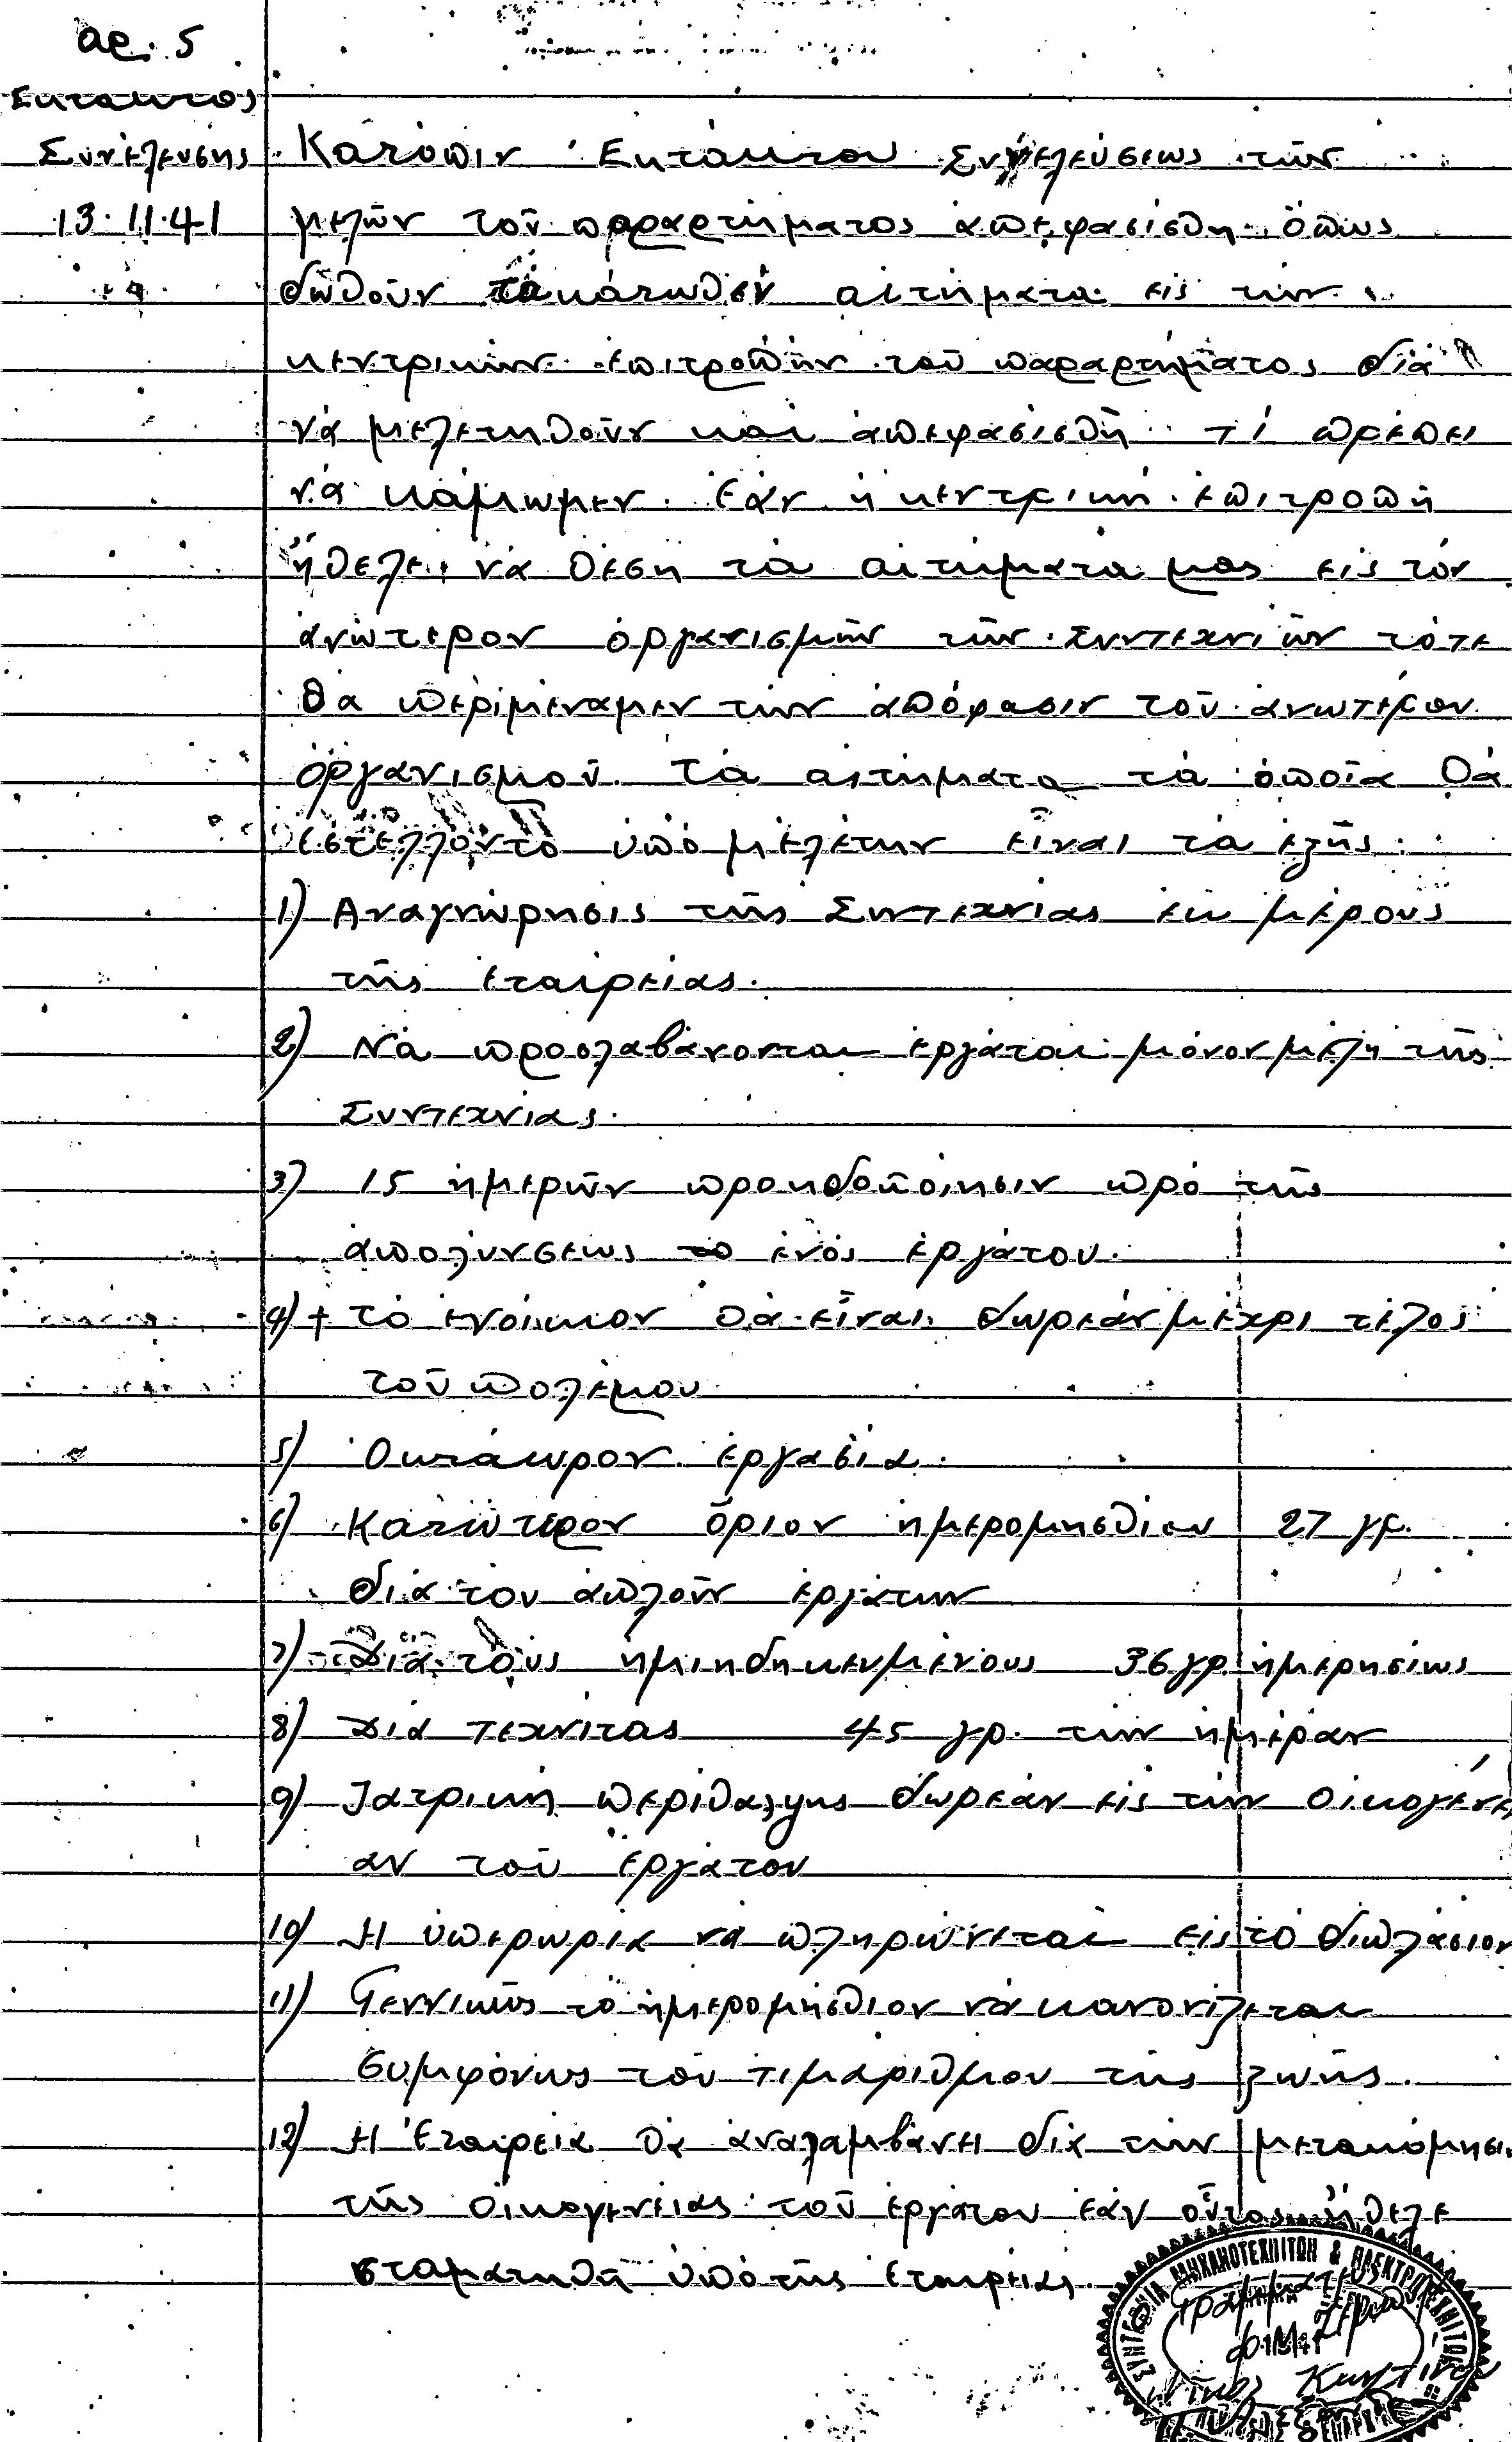 αρ. 5
Εκτακτος
Συνέλευσης
13.11.41
Κατόπιν Εκτάκτου Συνελεύσεως τῶν
μελῶν τοῦ παραρτήματος ἀπεφασίσθη ὅπως
δωθοῦν τὰ κάτωθεν αἰτήματα εἰς τὴν
κεντρικὴν ἐπιτροπὴν τοῦ παραρτήματος διὰ
νὰ μελετηθοῦν καὶ ἀπεφασισθῆ τί πρέπει
νὰ κάμωμεν. Εὰν ἡ κεντρικὴ ἐπιτροπὴ
ἤθελε νὰ θέση τὰ αἰτήματα μας εἰς τὸν
ἀνώτερον ὀργανισμὸν τῶν Συντεχνιῶν τότε
θα περιμέναμεν τὴν ἀπόφασιν τοῦ ἀνωτέρου
ὀργανισμοῦ. Τὰ αἰτήματα τὰ ὁποῖα θὰ
ἐστέλλοντο ὑπὸ μελέτην εἶναι τὰ ἑξῆς:
1) Αναγνώρησις τῆς Συντεχνίας ἐκ μέρους
τῆς ἑταιρείας.
2) Νὰ προσλαβάνονται ἐργάται μόνον μέλη τῆς
Συντεχνίας.
3) 15 ἡμερῶν προηδοποίησιν πρὸ τῆς
ἀπολύνσεως ἑνὸς ἐργάτου.
4) + τὸ ἐνοίκιον θὰ εἶναι δωρεὰν μέχρι τέλος
τοῦ πολέμου
5) Οκτάωρον ἐργασία.
6) Κατώτερον ὅριον ἡμερομησθίου 27 γρ.
διὰ τον ἁπλοῦν ἐργάτην
7) Διὰ τοὺς ἡμιηδηκευμένους 36 γρ. ἡμερησίως
8) Διὰ τεχνίτας 45 γρ. τὴν ἡμέραν
9) Ἰατρικὴ περίθαλψης δωρεὰν εἰς τὴν οἰκογένει
αν τοῦ ἐργάτου
10) Η ὑπερωρία νὰ πληρώνεται εἰς τὸ διπλάσιον
11) Γεννικῶς τὸ ἡμερομήσθιον νὰ κανονίζεται
συμφόνως τοῦ τιμαρίθμου τῆς ζωῆς.
12) Η Ἑταιρεία θὰ ἀναλαμβάνη διὰ τὴν μετακόμησι
τῆς οἰκογενείας τοῦ ἐργάτου ἐὰν οὗτος ἤθελε
σταματηθῆ ὑπὸ τῆς ἑταιρείας.
ΣΥΝΤΕΧΝΙΑ ΜΗΧΑΝΟΤΕΧΝΙΤΩΝ & ΗΛΕΚΤΡΟΤΕΧΝΙΤΩΝ
Γραμματεὺς